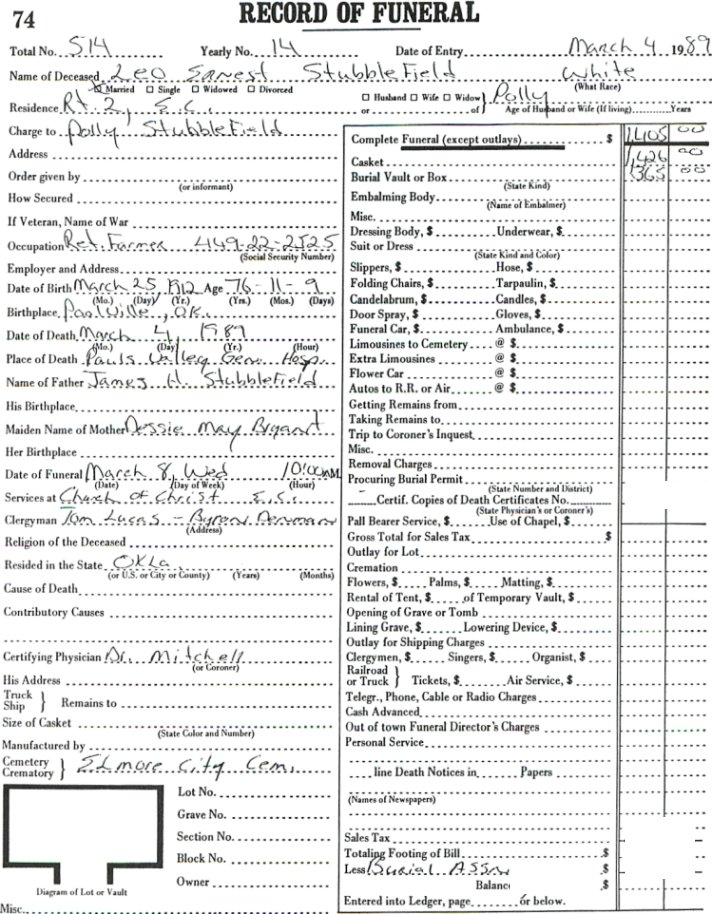 74
RECORD OF FUNERAL
Total No. 514 Yearly No. 14 Date of Entry March 4 1989
Name of Deceased Leo Earnest Stubblefield White
(What Race)
☒ Married ☐ Single ☐ Widowed ☐ Divorced
☐ Husband ☐ Wife ☐ Widow } Polly
Residence Rt. 2, E.C. or of } Age of Husband or Wife (If living) Years
Charge to Polly Stubblefield
Address
Order given by
(or informant)
How Secured
If Veteran, Name of War
Occupation Ret. Farmer 449-22-2525
(Social Security Number)
Employer and Address
Date of Birth March 25 1912 Age 76-11-9
(Mo.) (Day) (Yr.) (Yrs.) (Mos.) (Days)
Birthplace , OK.
Date of Death March 4 1989
(Mo.) (Day) (Yr.) (Hour)
Place of Death Pauls Valley Gen. Hosp.
Name of Father James H. Stubblefield
His Birthplace
Maiden Name of Mother Dessie May Bryant
Her Birthplace
Date of Funeral March 8, Wed 10:00AM
(Date) (Day of Week) (Hour)
Services at Church of Christ E.C.
Clergyman Tom Lucas - Byron Denman
(Address)
Religion of the Deceased
Resided in the State Okla.
(or U.S. or City or County) (Years) (Months)
Cause of Death
Contributory Causes
Certifying Physician Dr. Mitchell
(or Coroner)
His Address
Truck
Ship } Remains to
Size of Casket
(State Color and Number)
Manufactured by
Cemetery
Crematory } Elmore City Cem.
Lot No.
Grave No.
Section No.
Block No.
Owner
Diagram of Lot or Vault
Misc.
Complete Funeral (except outlays) $ 1,405 00
Casket 1,426 00
Burial Vault or Box 365 00
(State Kind)
Embalming Body
(Name of Embalmer)
Misc.
Dressing Body, $ Underwear, $
Suit or Dress
(State Kind and Color)
Slippers, $ Hose, $
Folding Chairs, $ Tarpaulin, $
Candelabrum, $ Candles, $
Door Spray, $ Gloves, $
Funeral Car, $ Ambulance, $
Limousines to Cemetery @ $
Extra Limousines @ $
Flower Car @ $
Autos to R.R. or Air @ $
Getting Remains from
Taking Remains to
Trip to Coroner's Inquest
Misc.
Removal Charges
Procuring Burial Permit
(State Number and District)
Certif. Copies of Death Certificates No.
(State Physician's or Coroner's)
Pall Bearer Service, $ Use of Chapel, $
Gross Total for Sales Tax $
Outlay for Lot
Cremation
Flowers, $ Palms, $ Matting, $
Rental of Tent, $ of Temporary Vault, $
Opening of Grave or Tomb
Lining Grave, $ Lowering Device, $
Outlay for Shipping Charges
Clergymen, $ Singers, $ Organist, $
Railroad
or Truck } Tickets, $ Air Service, $
Telegr., Phone, Cable or Radio Charges
Cash Advanced
Out of town Funeral Director's Charges
Personal Service
line Death Notices in Papers
(Names of Newspapers)
Sales Tax
Totaling Footing of Bill $
Less Burial Assn $
Balance $
Entered into Ledger, page or below.